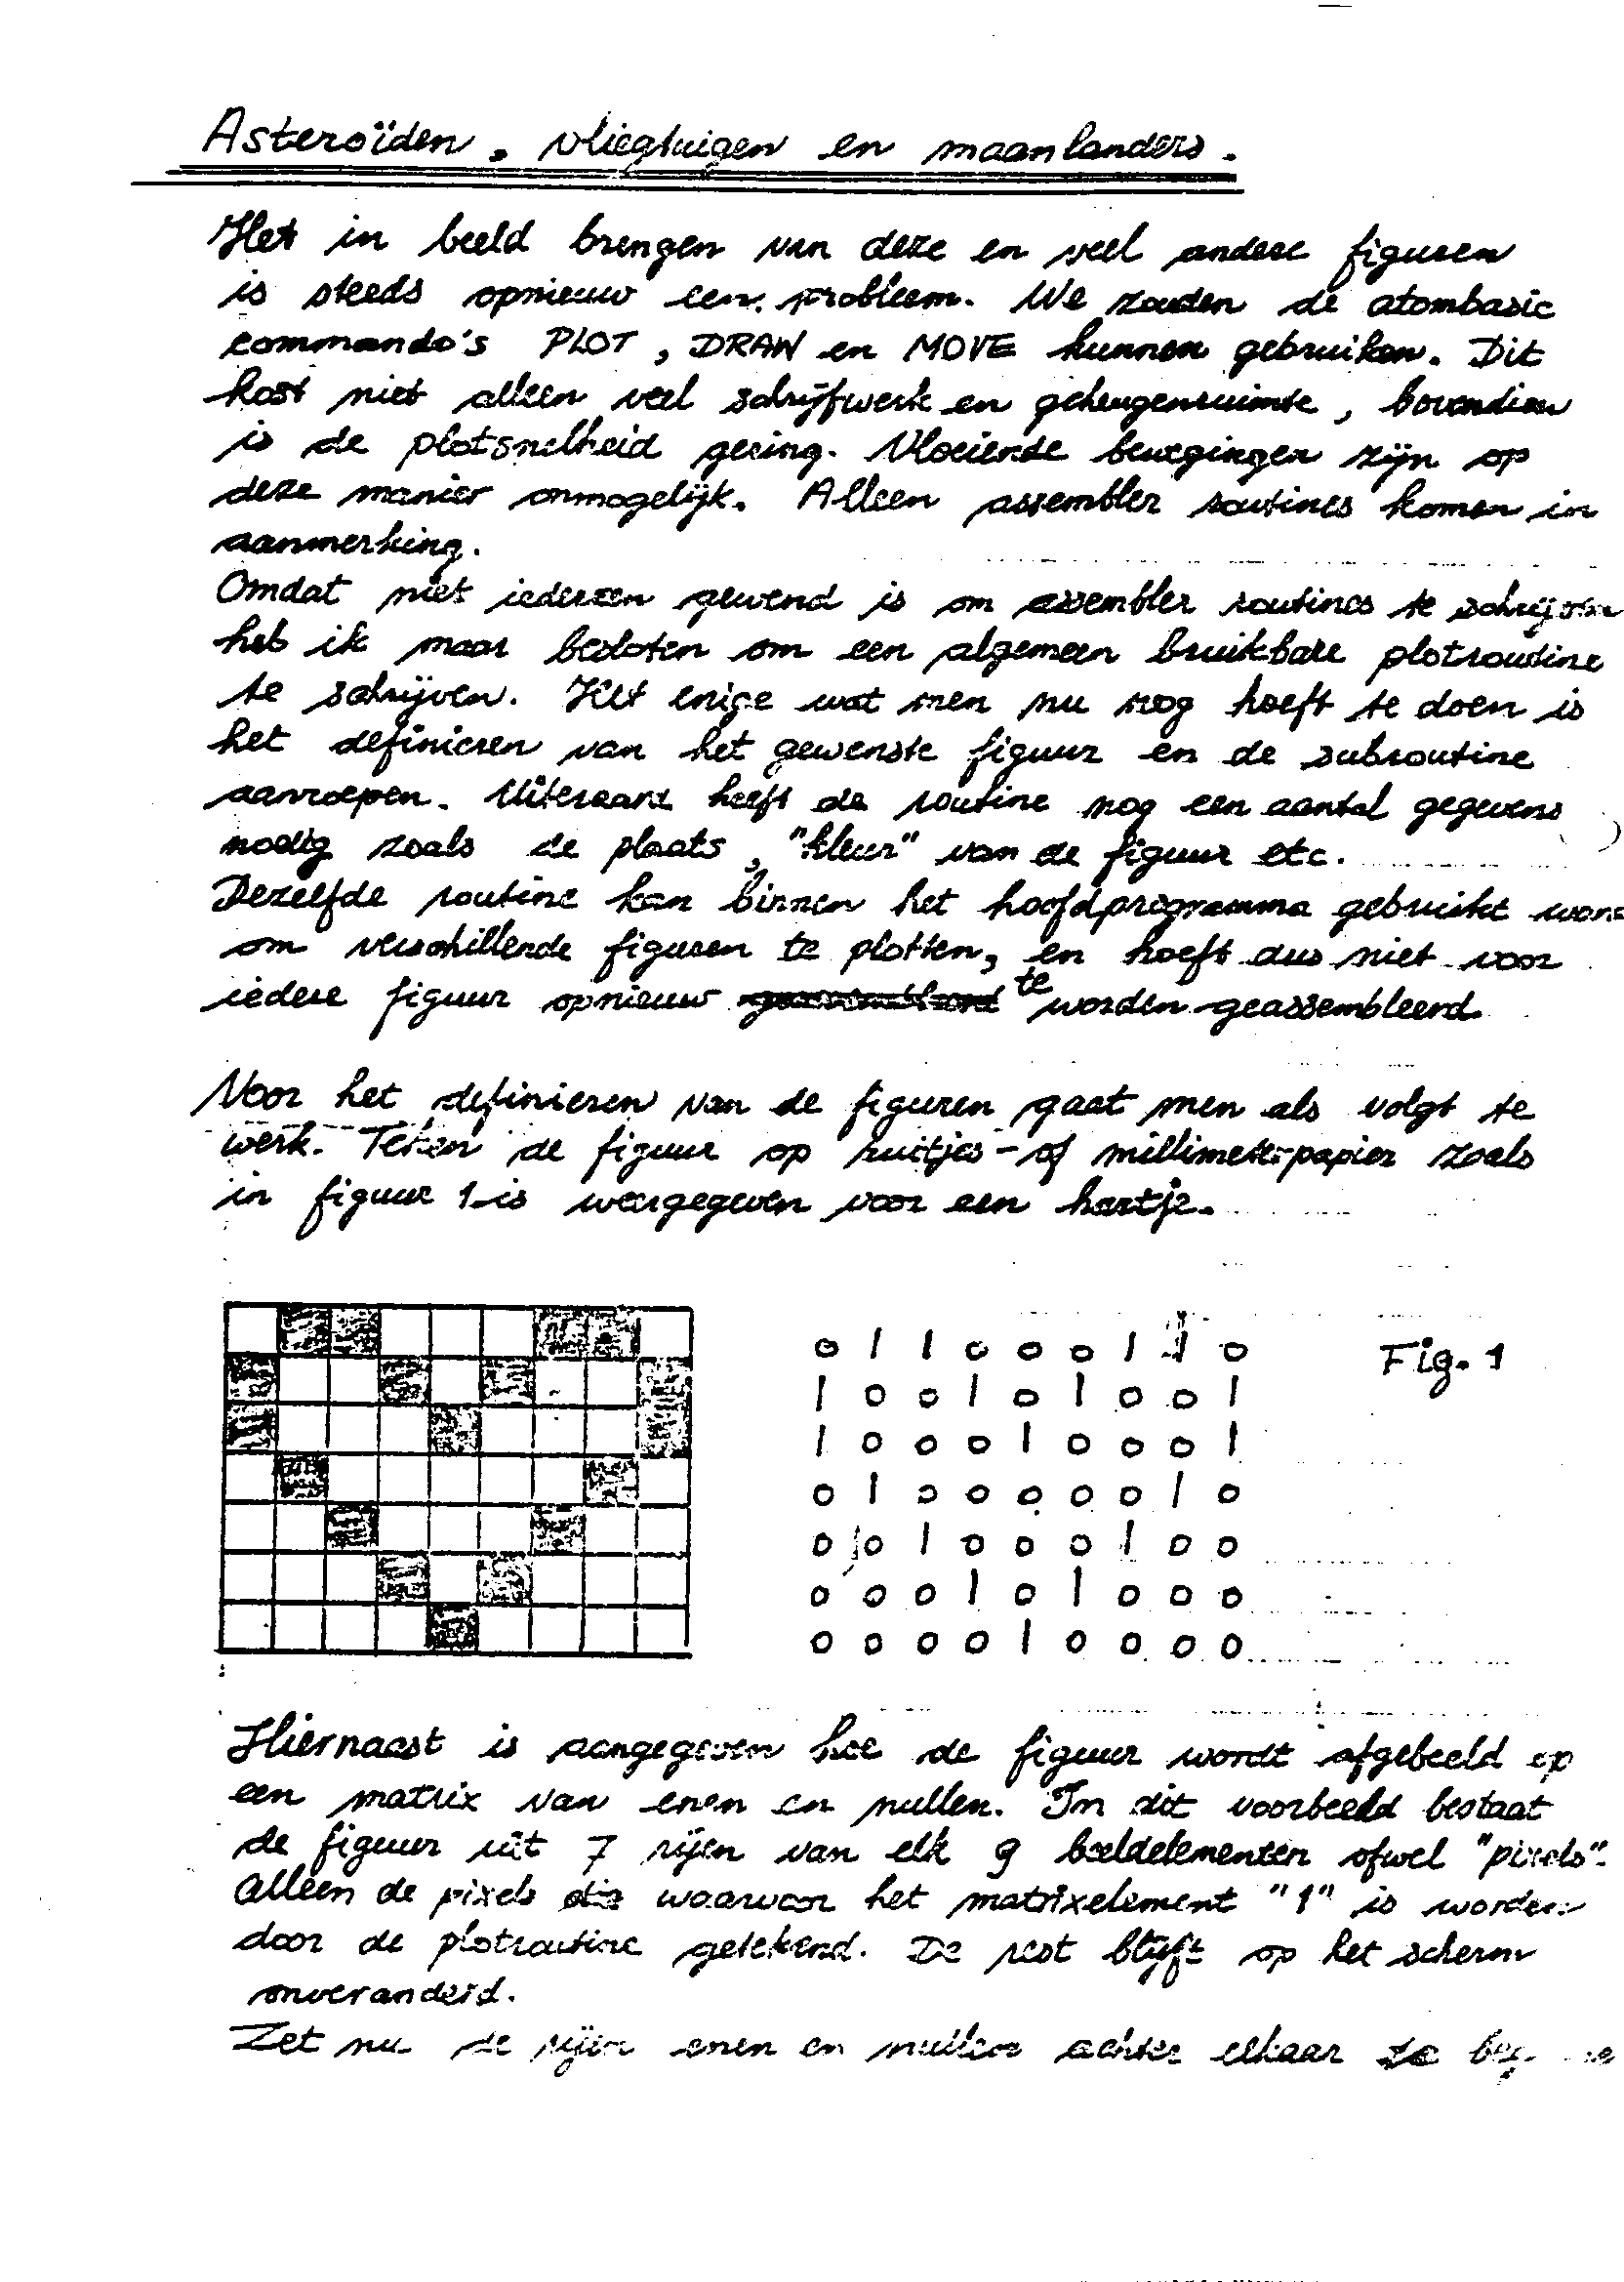 Asteroïden, vliegtuigen en maanlanders.
Het in beeld brengen van deze en veel andere figuren
is steeds opnieuw een probleem. We zouden de atombasic
commando's PLOT, DRAW en MOVE kunnen gebruiken. Dit
kost niet alleen veel schrijfwerk en geheugenruimte, bovendien
is de plotsnelheid gering. Vloeiende bewegingen zijn op
deze manier onmogelijk. Alleen assembler routines komen in
aanmerking.
Omdat niet iedereen gewend is om assembler routines te schrijven
heb ik maar besloten om een algemeen bruikbare plotroutine
te schrijven. Het enige wat men nu nog hoeft te doen is
het definieren van het gewenste figuur en de subroutine
aanroepen. Uiteraard heeft de routine nog een aantal gegevens
nodig zoals de plaats, "kleur" van de figuur etc.
Dezelfde routine kan binnen het hoofdprogramma gebruikt
om verschillende figuren te plotten, en hoeft dus niet voor
iedere figuur opnieuw te worden geassembleerd.
Voor het definieren van de figuren gaat men als volgt te
werk. Teken de figuur op ruitjes- of millimeterpapier zoals
in figuur 1 is weergegeven voor een hartje.
0 1 1 0 0 0 1 1 0 Fig. 1
1 0 0 1 0 1 0 0 1
1 0 0 0 1 0 0 0 1
0 1 0 0 0 0 0 1 0
0 0 1 0 0 0 1 0 0
0 0 0 1 0 1 0 0 0
0 0 0 0 1 0 0 0 0
Hiernaast is aangegeven hoe de figuur wordt afgebeeld op
een matrix van enen en nullen. In dit voorbeeld bestaat
de figuur uit 7 rijen van elk 9 beeldelementen ofwel "pixels".
Alleen de pixels waarvoor het matrixelement "1" is worden
door de plotroutine getekend. De rest blijft op het scherm
onveranderd.
Zet nu de rijen enen en nullen achter elkaar